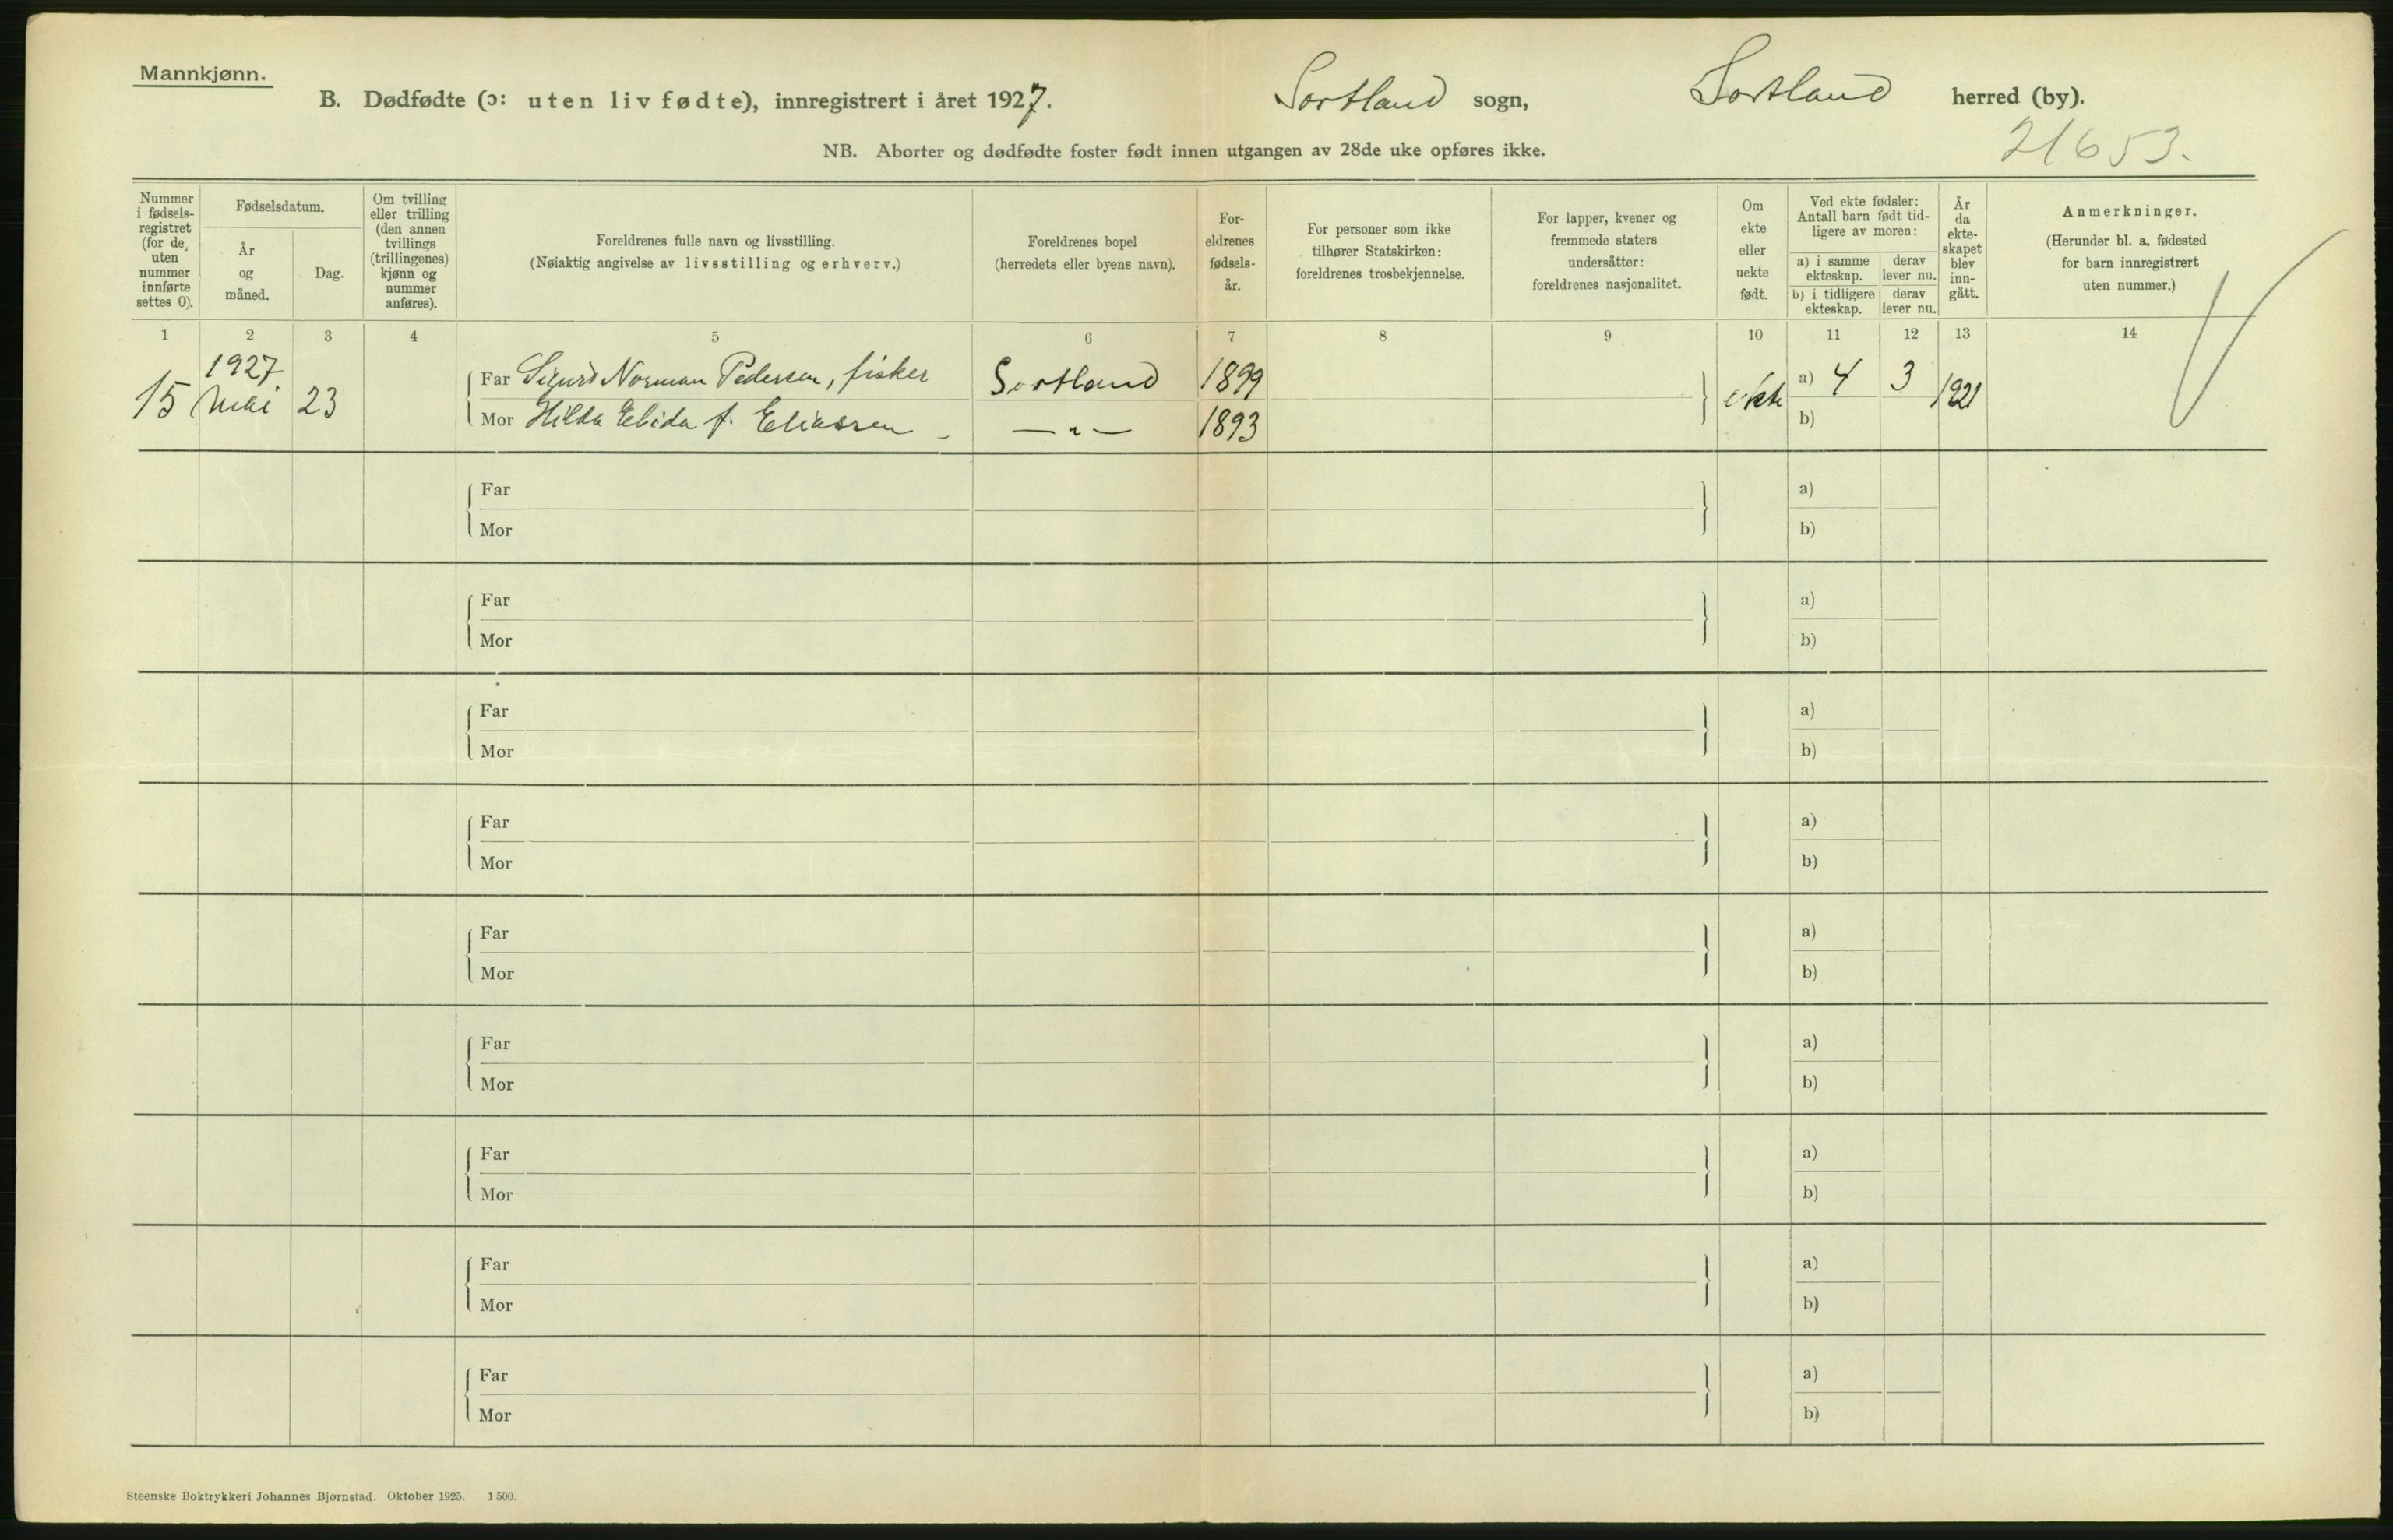 Mannkjønn.
B. Dødfødte (ɔ: uten liv fødte), innregistrert i året 1927. Sortland sogn, Sortland herred (by).
NB. Aborter og dødfødte foster født innen utgangen av 28de uke opføres ikke.
21653.
Nummer i fødsels-registret (for de uten nummer innførte settes 0).
Fødselsdatum.
År og måned.
Dag.
Om tvilling eller trilling (den annen tvillings (trillingenes) kjønn og nummer anføres).
Foreldrenes fulle navn og livsstilling.
(Nøiaktig angivelse av livsstilling og erhverv.)
Foreldrenes bopel
(herredets eller byens navn).
For-eldrenes fødsels-år.
For personer som ikke tilhører Statskirken: foreldrenes trosbekjennelse.
For lapper, kvener og fremmede staters undersåtter: foreldrenes nasjonalitet.
Om ekte eller uekte født.
Ved ekte fødsler: Antall barn født tid-ligere av moren:
a) i samme ekteskap. derav lever nu.
b) i tidligere ekteskap. derav lever nu.
År da ekte-skapet blev inn-gått.
Anmerkninger.
(Herunder bl. a. fødested for barn innregistrert uten nummer.)
1 2 3 4 5 6 7 8 9 10 11 12 13 14
15 1927 Mai 23 Far Sigurd Norman Pedersen, fisker Sortland 1899 ekte a) 4 3 1921
Mor Hilda Elida f. Eliassen - — " — 1893 b)
Far a)
Mor b)
Far a)
Mor b)
Far a)
Mor b)
Far a)
Mor b)
Far a)
Mor b)
Far a)
Mor b)
Far a)
Mor b)
Far a)
Mor b)
Far a)
Mor b)
Steenske Boktrykkeri Johannes Bjørnstad. Oktober 1925. 1500.